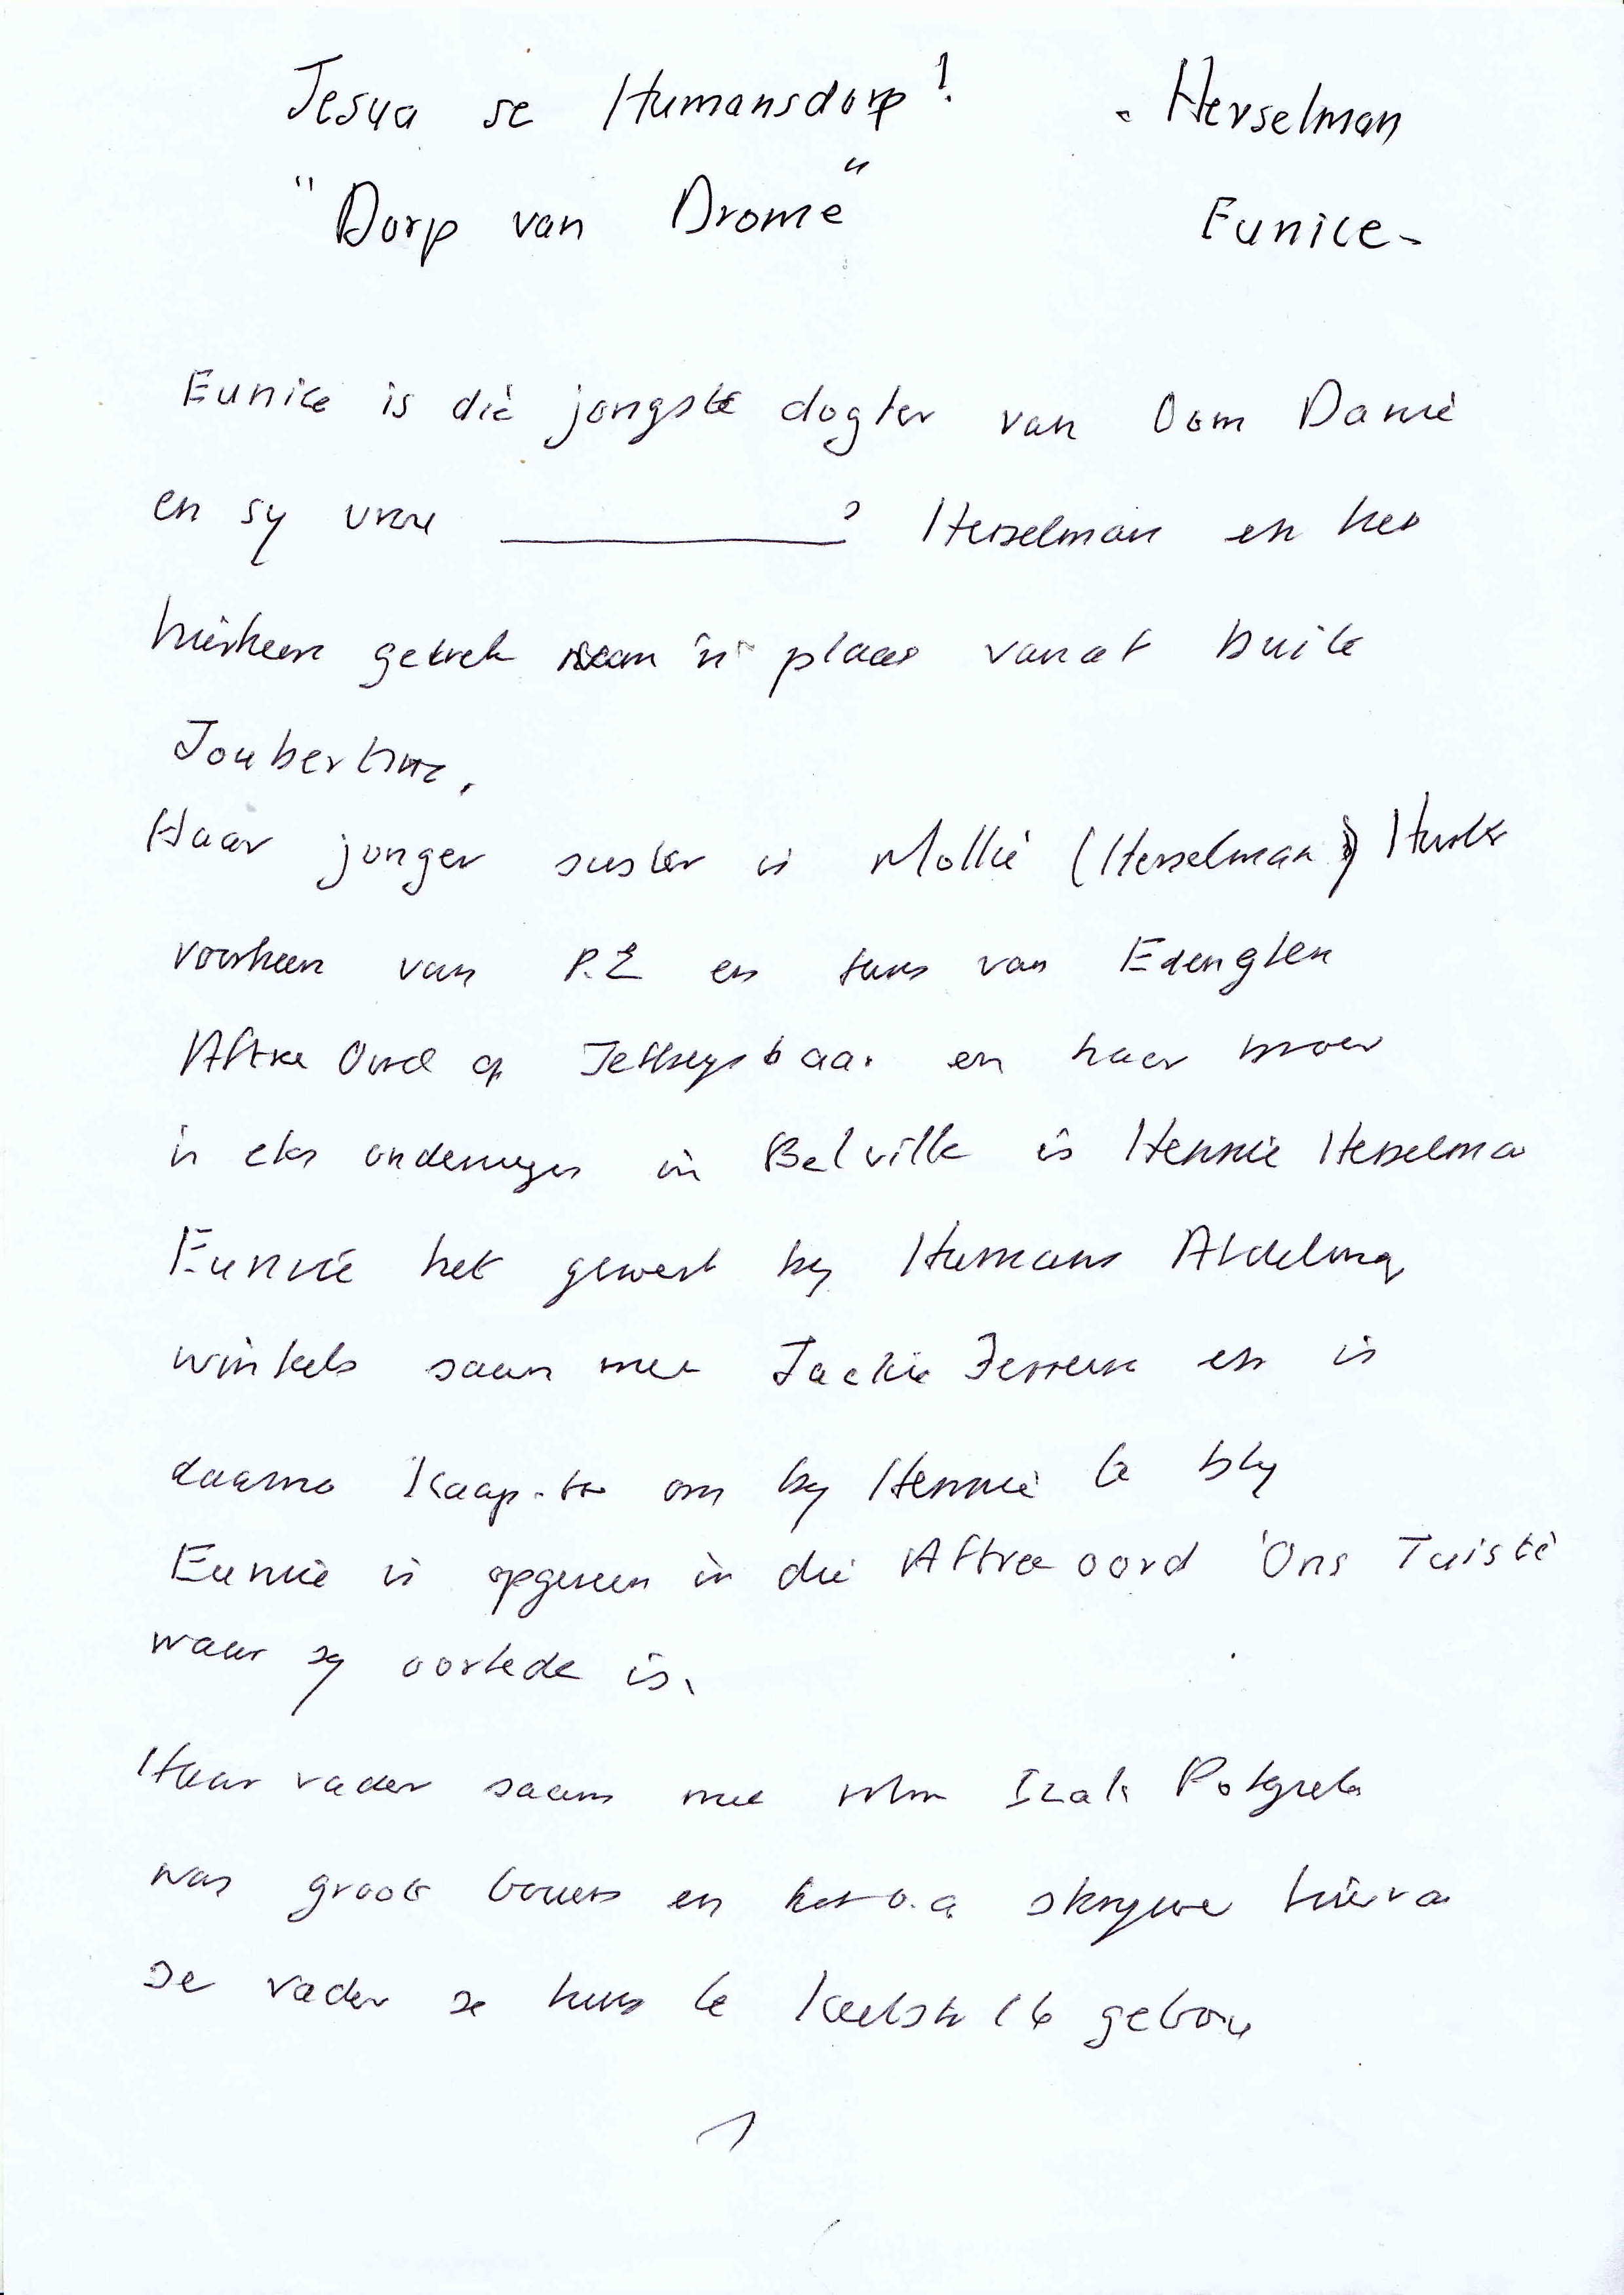 Jesua se Humansdorp! - Herselman
"Dorp van Drome" Eunice -
Eunice is die jongste dogter van Oom Danie
en sy vrou ________? Herselman en het
hierheen getrek 'n plaas vanaf buite
Joubertina.
Haar jonger suster is Mollie (Herselman)
voorheen van P.E en tans van Edenglen
Aftree Oord op Jeffreysbaai en haar broer
'n eks onderwyser in Belville is Hennie Herselman
Eunice het gewerk by Humans Afdeling
winkels saam met Jackie Ferreira en is
daarna Kaap-toe om by Hennie te bly
Eunice is opgeneem in die Aftree oord 'Ons Tuiste'
waar sy oorlede is.
Haar vader saam met Mnr Izak Potgieter
was groot bouers en het o.a skrywer hiervan
se vader se huis te 16 gebou
1